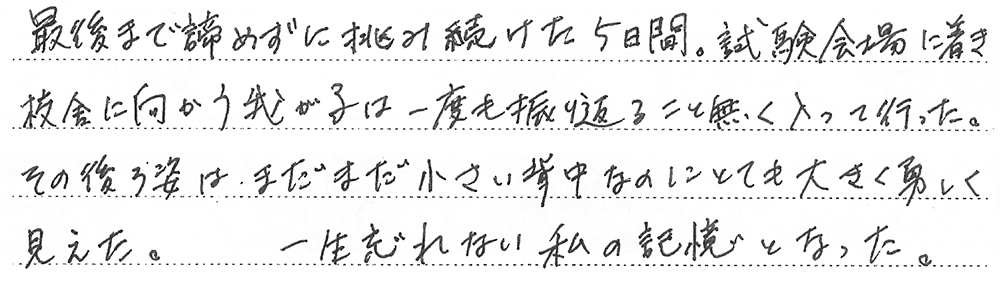 最後まで諦めずに挑み続けた5日間。試験会場に着き
校舎に向かう我が子は一度も振り返ること無く入って行った。
その後ろ姿は、まだまだ小さい背中なのにとても大きく勇しく
見えた。 一生忘れない私の記憶となった。